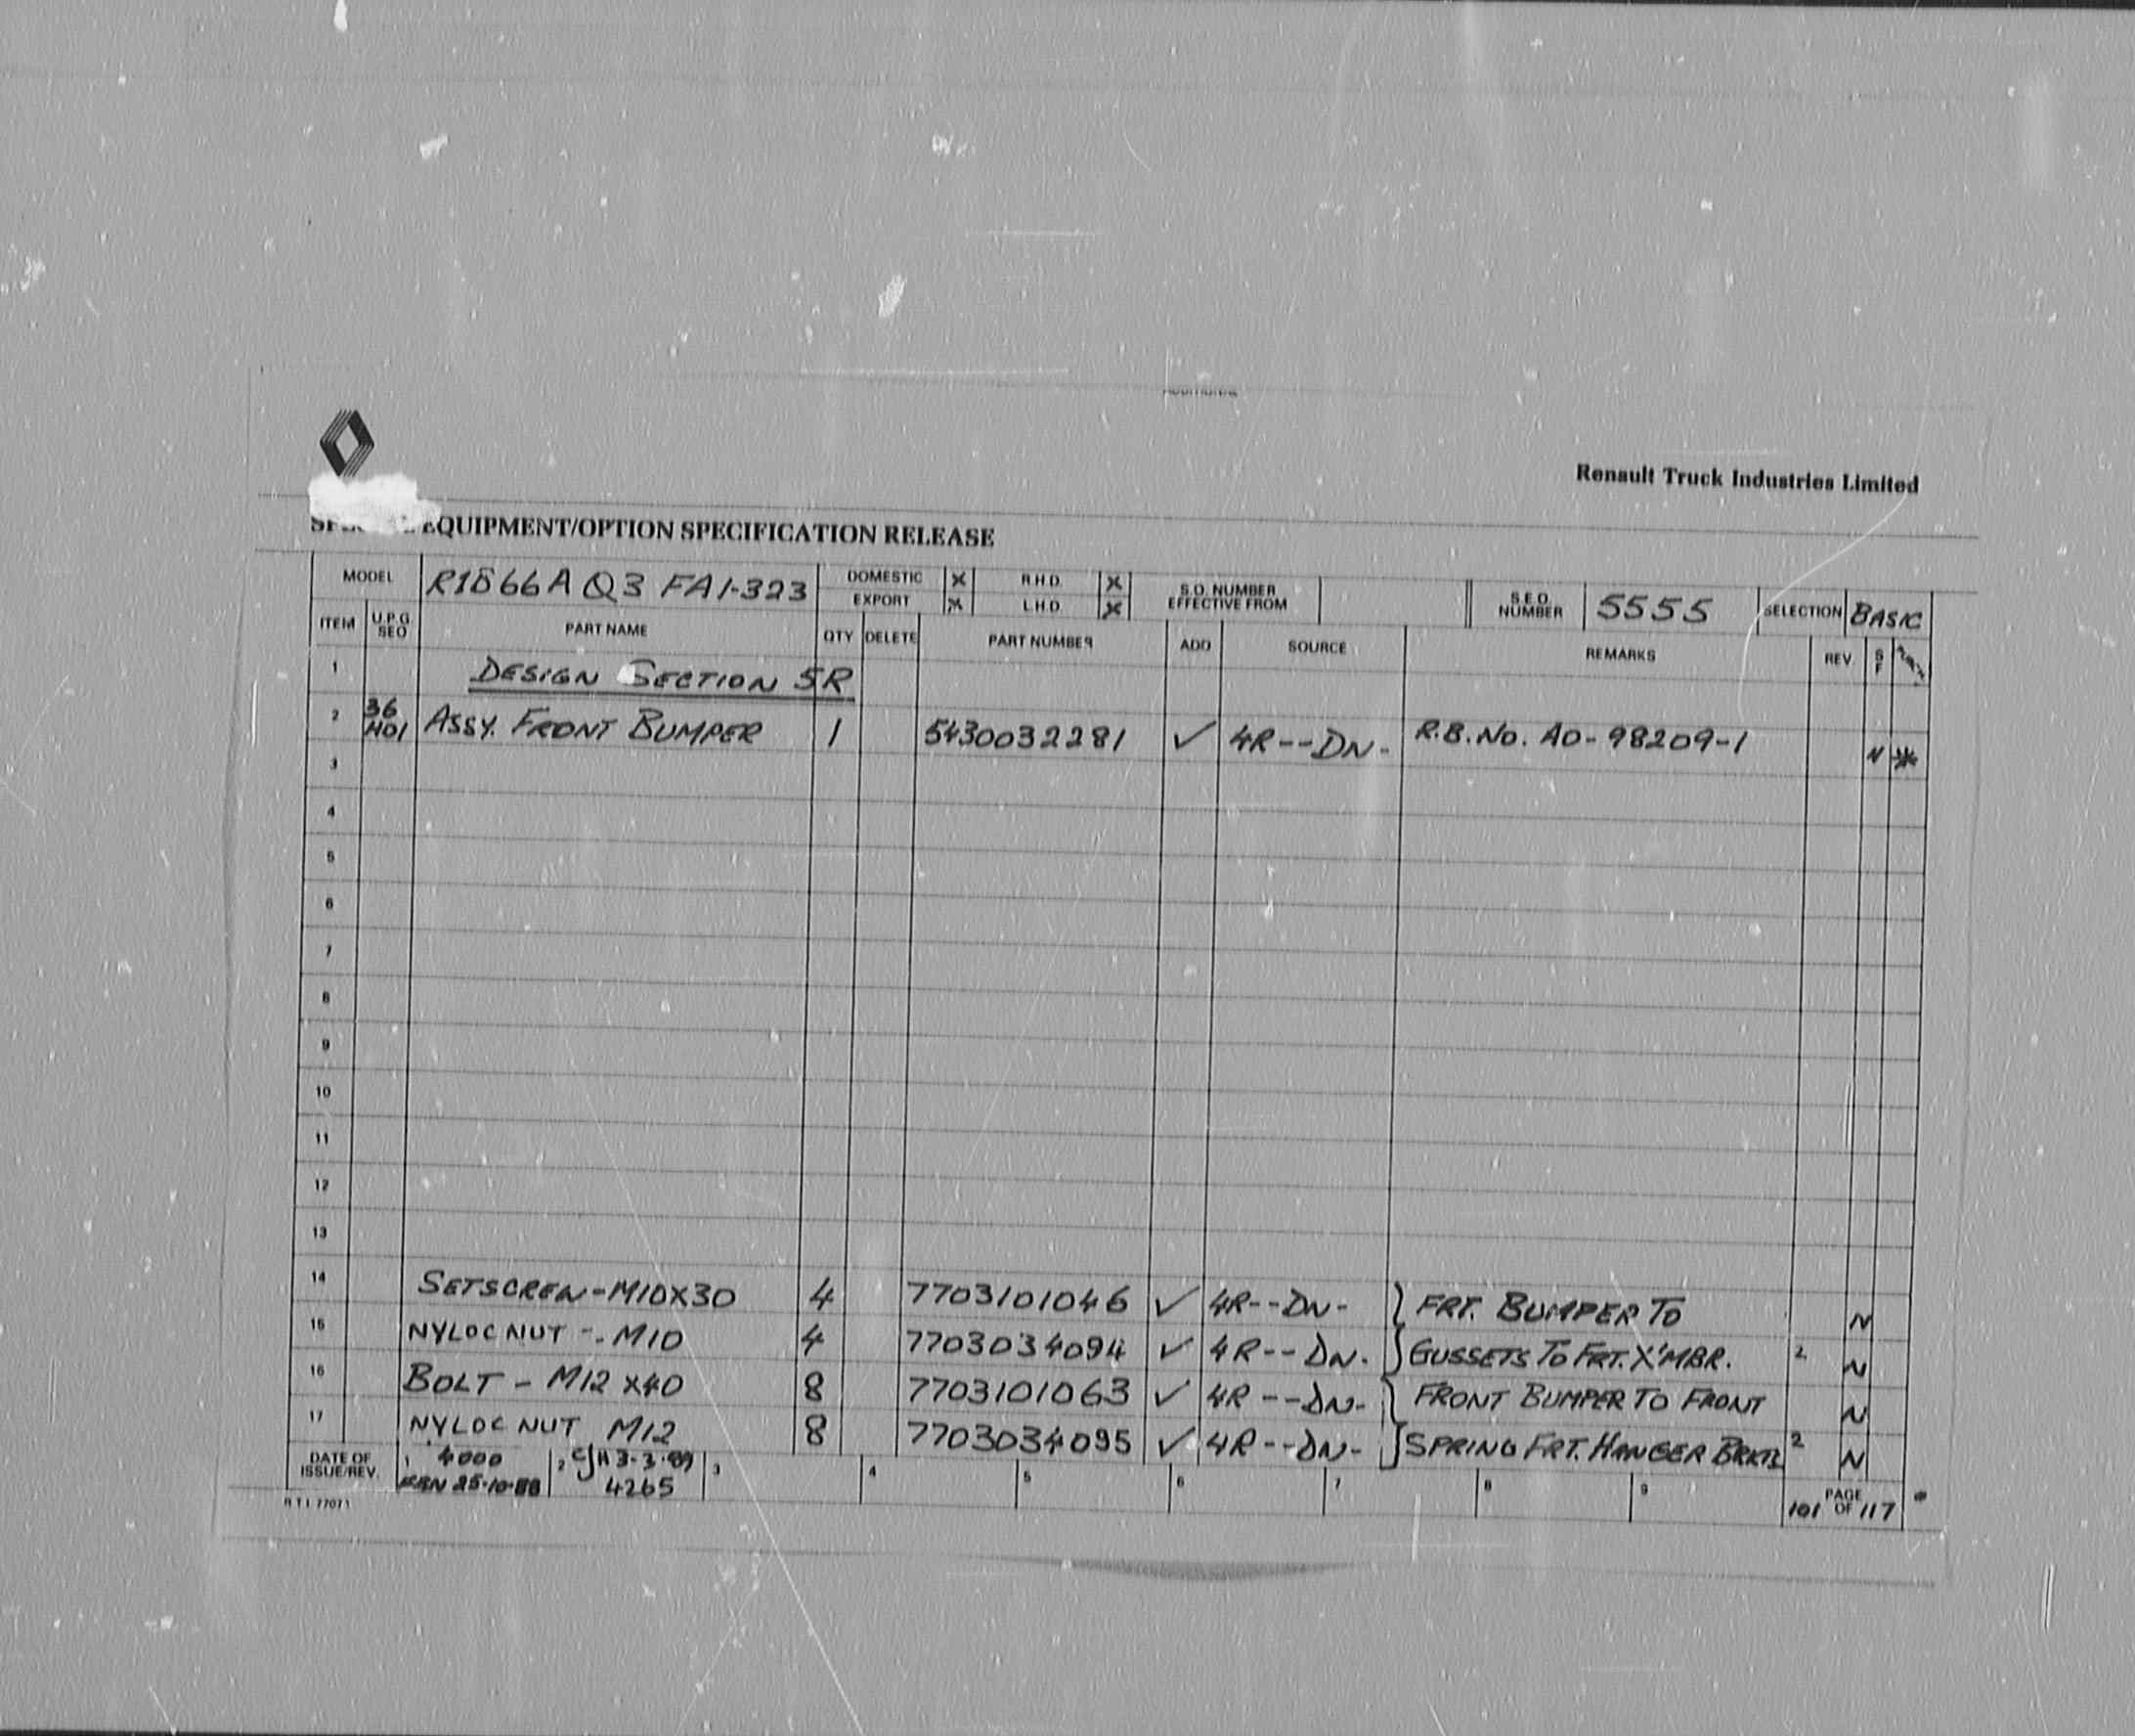 Renault Truck Industries Limited
EQUIPMENT/OPTION SPECIFICATION RELEASE
MODEL R1866A Q3 FA1-323 DOMESTIC X R.H.D. X S.O. NUMBER EFFECTIVE FROM S.E.O. NUMBER 5555 SELECTION BASIC
EXPORT X L.H.D. X
ITEM U.P.G SEO PART NAME QTY DELETE PART NUMBER ADD SOURCE REMARKS REV. S F
1 DESIGN SECTION 5R
2 36 H01 ASSY. FRONT BUMPER 1 5430032281 ✓ 4R--DN- R.B.No. AO-98209-1 N *
3
4
5
6
7
8
9
10
11
12
13
14 SETSCREW-M10X30 4 7703101046 ✓ 4R--DN- } FRT. BUMPER TO N
15 NYLOC NUT -. M10 4 7703034094 ✓ 4R--DN. } GUSSETS TO FRT. X'MBR. 2 N
16 BOLT - M12 X40 8 7703101063 ✓ 4R--DN- } FRONT BUMPER TO FRONT N
17 NYLOC NUT M12 8 7703034095 ✓ 4R--DN- } SPRING FRT. HANGER BRKTS 2 N
DATE OF ISSUE/REV. 1 4000 25-10-88 2 CJH 3-3-89 4265 3 4 5 6 7 8 9 PAGE 101 OF 117
R.T.I. 77071